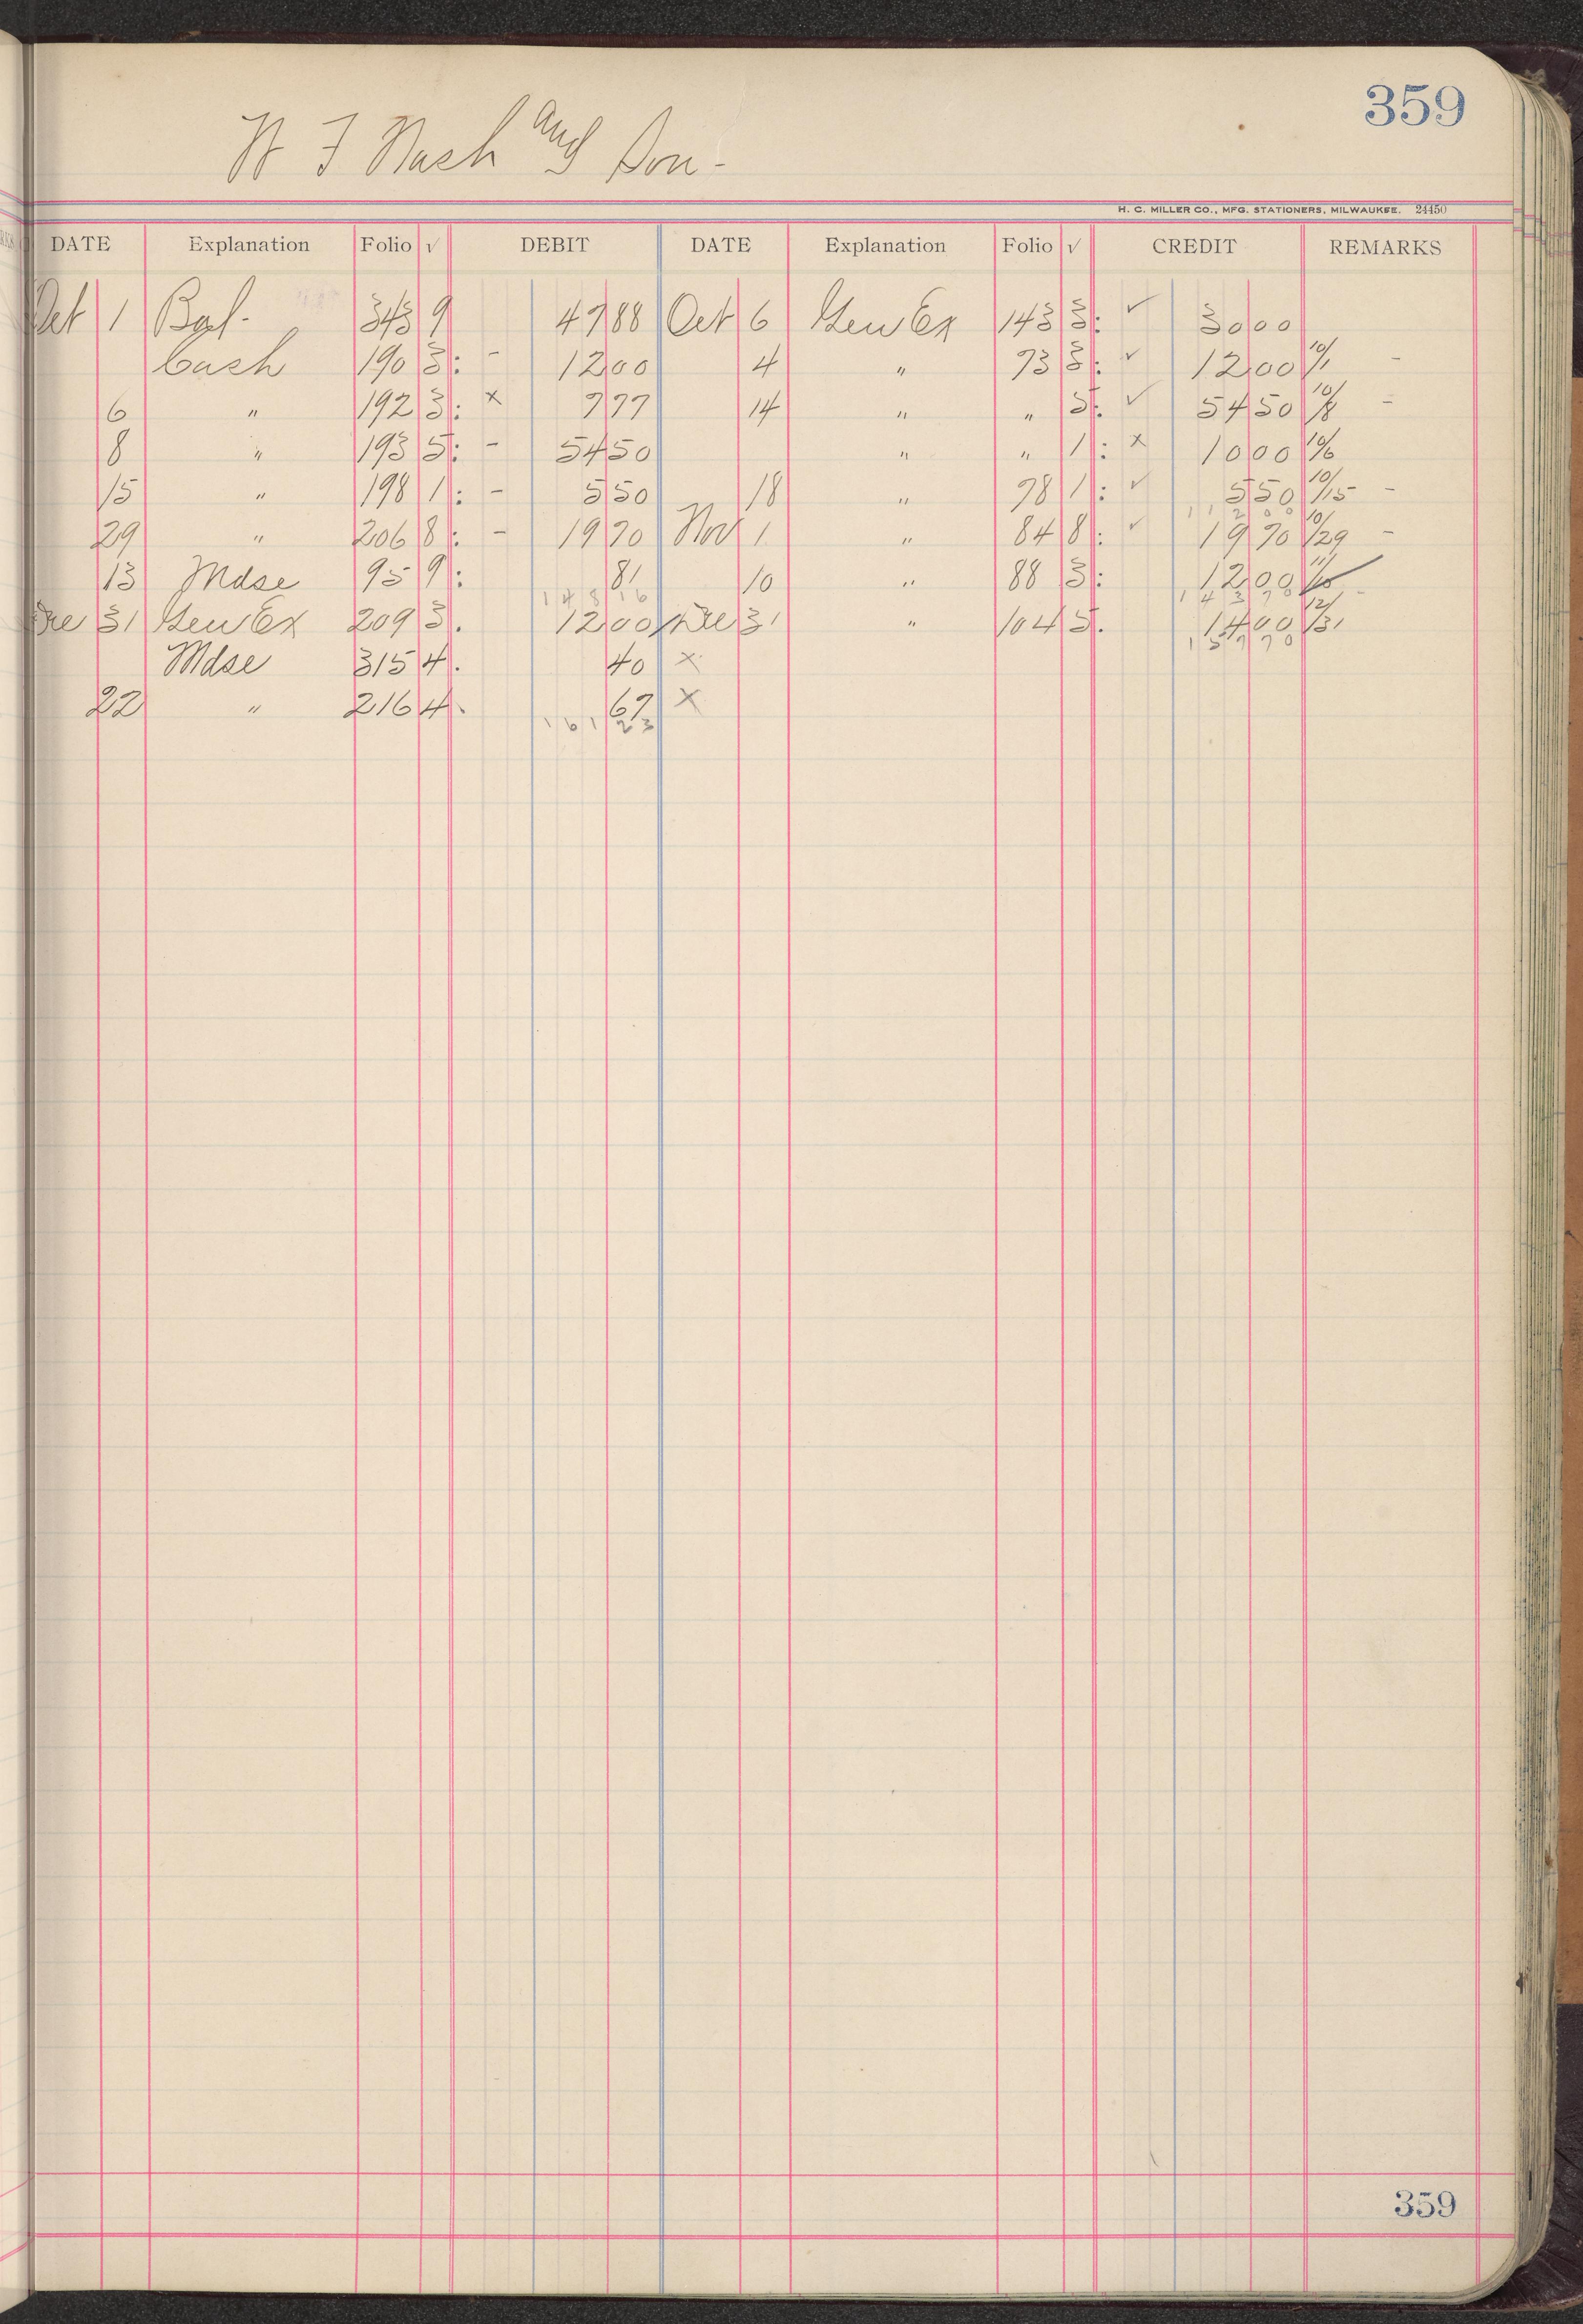 359
W F Nash and Son -
H. C. MILLER CO., MFG. STATIONERS, MILWAUKEE. 24450
DATE Explanation Folio √ DEBIT DATE Explanation Folio √ CREDIT REMARKS
Oct 1 Bal. 343 9 47 88 Oct 6 Gen Ex 143 3: ✓ 30 00
Cash 190 3: - 12 00 4 " 73 3: ✓ 12 00 10/1 -
6 " 192 3: x 7 77 14 " " 5: ✓ 54 50 10/8 -
8 " 193 5: - 54 50 " " 1: x 10 00 10/6
15 " 198 1: - 5 50 18 " 78 1: ✓ 5 50 10/15 -
112 00
29 " 206 8: - 19 70 Nov 1 " 84 8: ✓ 19 70 10/29 -
13 Mdse 95 9: 81 10 " 88 3: 12 00
148 16 143 70
Dec 31 Gen Ex 209 3. 12 00 Dec 31 " 104 5. 14 00 12/31
157 70
Mdse 315 4. 40 x
22 " 216 4. 67 x
161 23
359